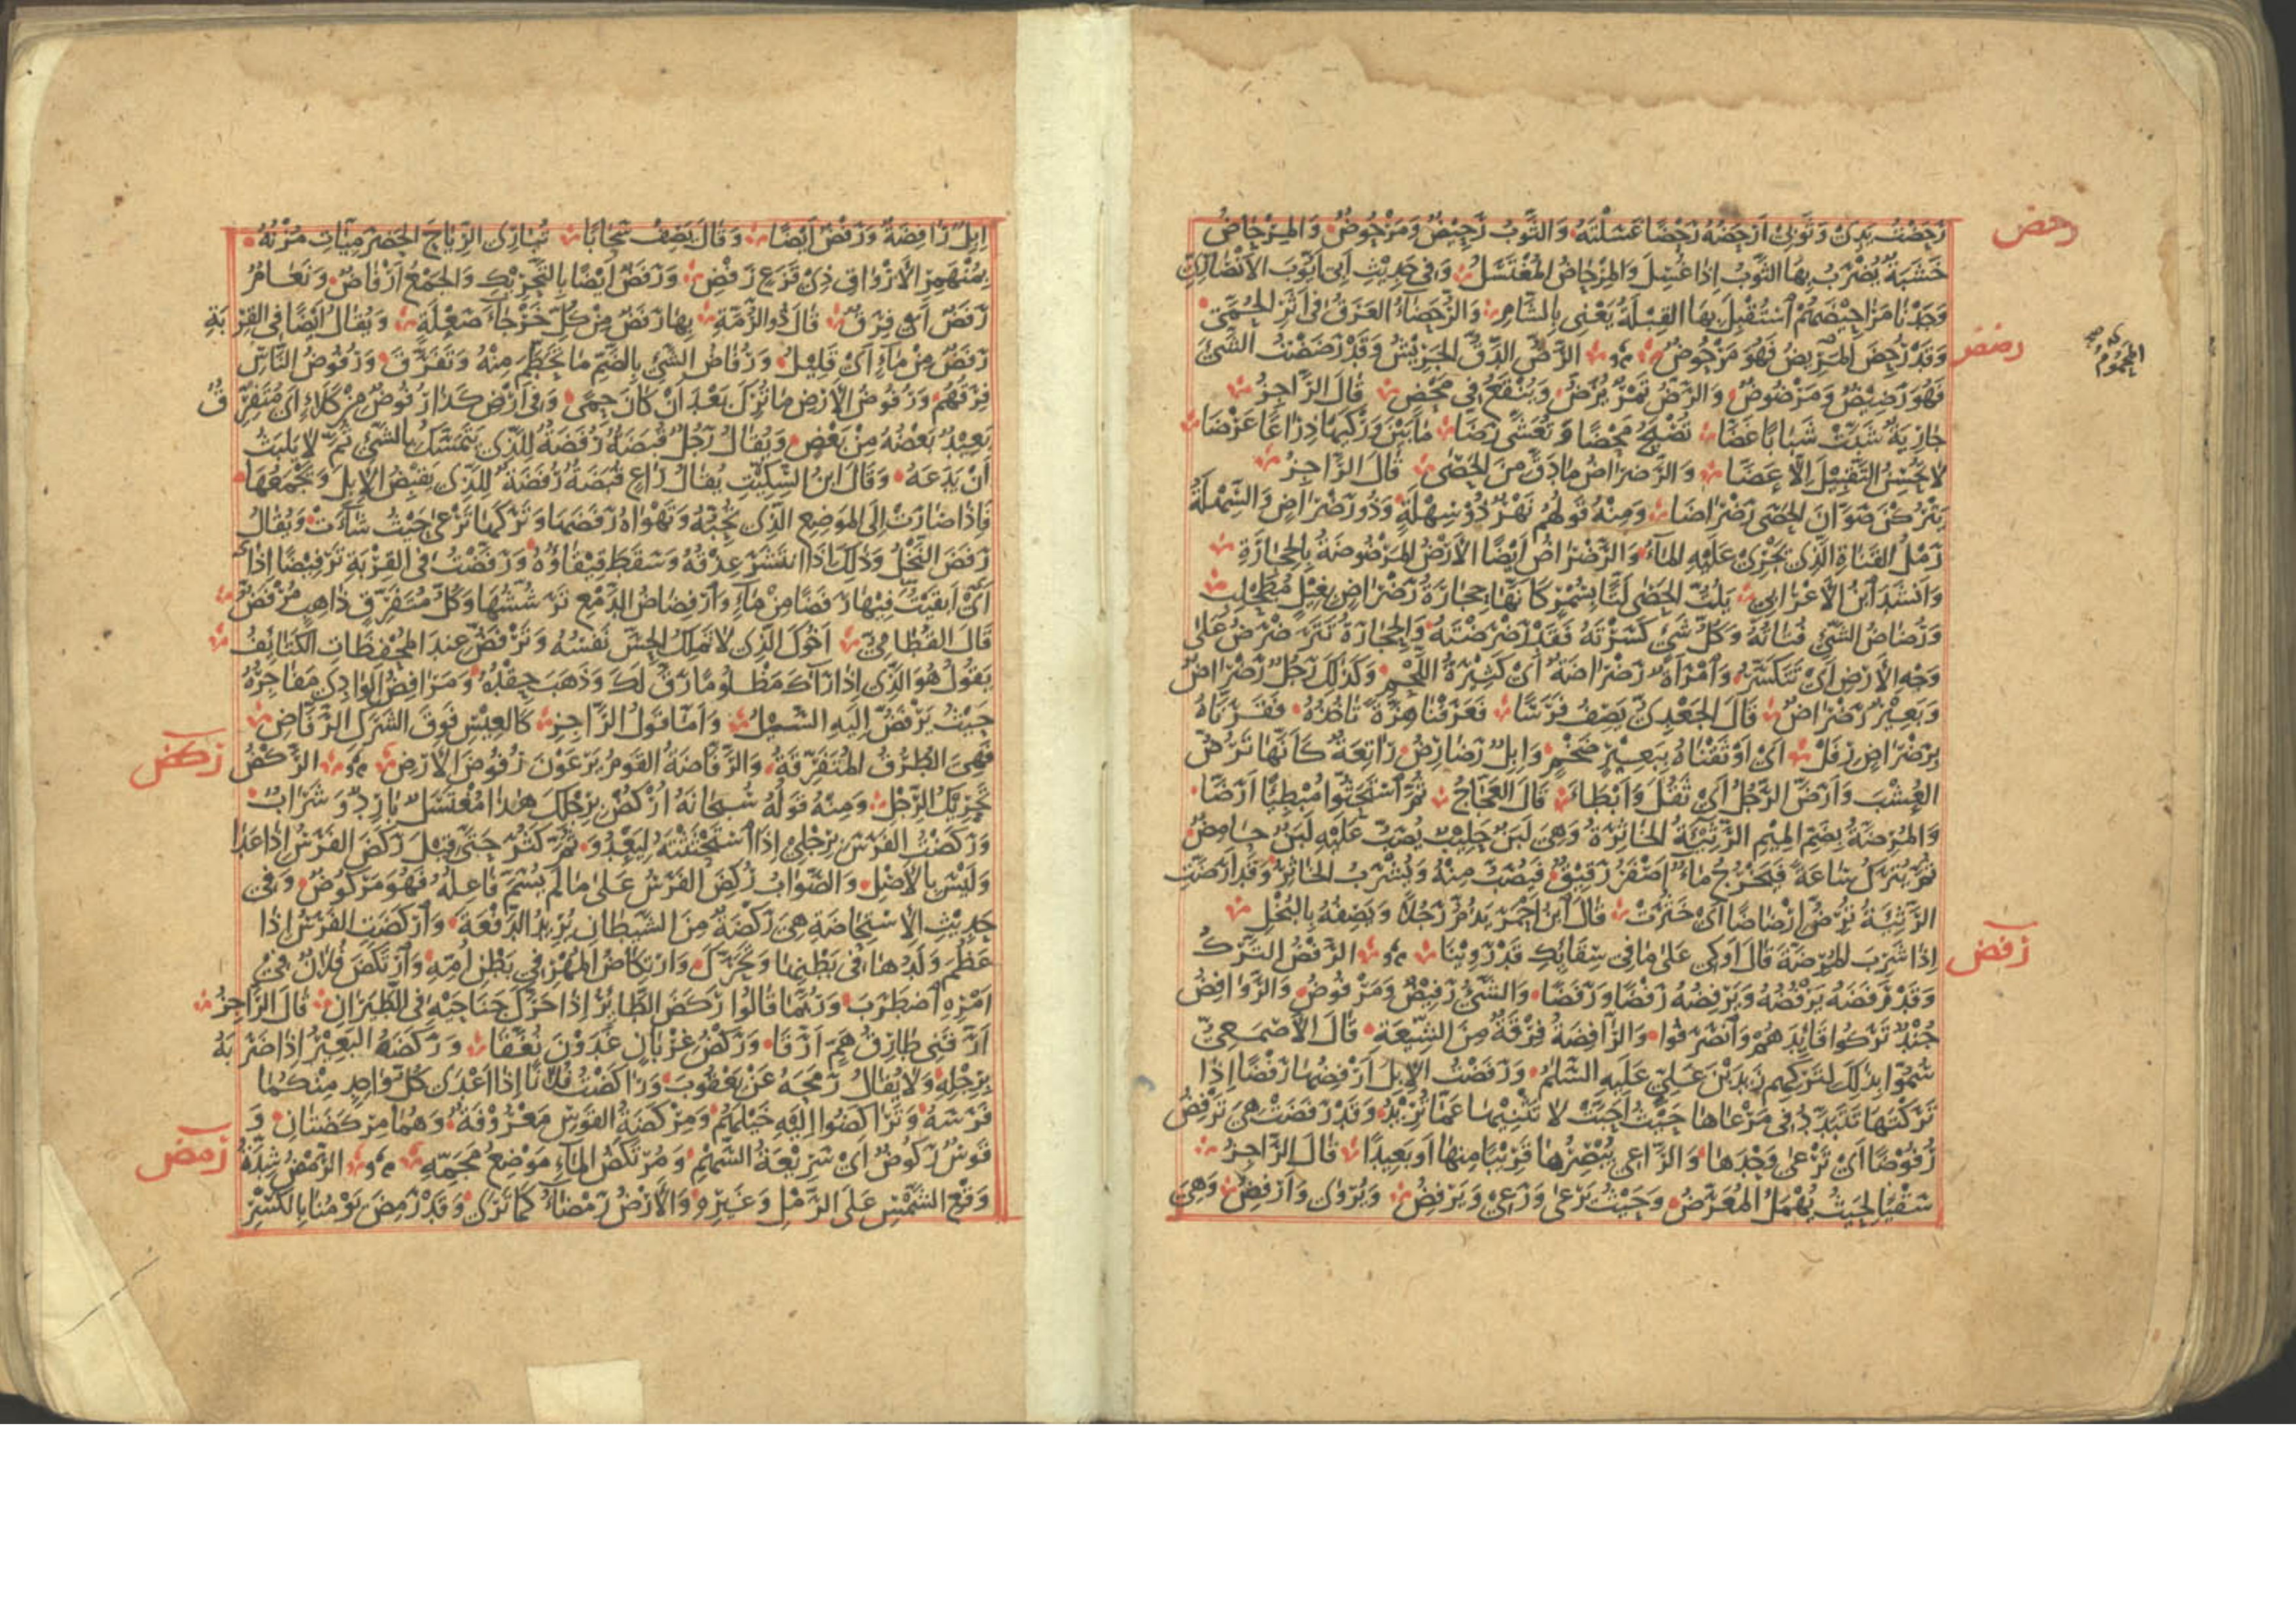 رحض
رَحَضْتُ يَدِي وَثَوْبِي أَرْحَضُهُ رَحْضًا غَسَلْتَهُ وَالثَّوْبُ رَحِيضٌ وَمَرْحُوضٌ وَالمِرْحَاضُ
خَشَبَةٌ يُضْرَبُ بِهَا الثَّوْبُ إِذَا غُسِلَ وَالمِرْحَاضُ المُغْتَسَلُ وَفِي حَدِيثِ أَبِي أَيُّوبَ الأَنْصَارِيِّ
وَجَدْنَا مَرَاحِيضَهُمُ اسْتُقْبِلَ بِهَا القِبْلَةُ يَعْنِي بِالشَّامِ وَالرُّحَضَاءُ العَرَقُ فِي أَثَرِ الحُمَّى
المحموم
رضض
وَقَدْ رُحِضَ المَرِيضُ فَهُوَ مَرْحُوضٌ الرَّضُّ الدَّقُّ الجَرِيشُ وَقَدْ رَضَضْتُ الشَّيْءَ
فَهُوَ رَضِيضٌ وَمَرْضُوضٌ وَالرَّضُّ تَمْرٌ يُرَضُّ وَيُنْقَعُ فِي مَحْضٍ قَالَ الرَّاجِزُ
جَارِيَةٌ شَبَّتْ شَبَابًا غَضَّا تُصْبَحُ مَحْضًا وَتُعَشَّى رَضَّا مَا بَيْنَ وَرْكَيْهَا ذِرَاعًا عَرْضَا
لَا تُحْسِنُ التَّقْبِيلَ إِلَّا عَضَّا وَالرَّضْرَاضُ مَا دَقَّ مِنَ الحَصَى قَالَ الرَّاجِزُ
يَتْرُكْنَ صَوَّانَ الحَصَى رَضْرَاضَا وَمِنْهُ قَوْلُهُمْ نَهْرٌ ذُو سِهْلَةٍ وَذُو رَضْرَاضٍ وَالسِّهْلَةُ
رَمْلُ القَنَاةِ الَّذِي يَجْرِي عَلَيْهِ المَاءُ وَالرَّضْرَاضُ أَيْضًا الأَرْضُ المَرْضُوضَةُ بِالحِجَارَةِ
وَأَنْشَدَ ابْنُ الأَعْرَابِيِّ يَلُتُّ الحَصَى لَتًّا بِسُمْرٍ كَأَنَّهَا حِجَارَةُ رَضْرَاضٍ بِغَيْلٍ مُطَحْلِبِ
وَرُضَاضُ الشَّيْءِ فُتَاتُهُ وَكُلُّ شَيْءٍ كَسَرْتَهُ فَقَدْ رَضْرَضْتَهُ وَالحِجَارَةُ تَتَرَضْرَضُ عَلَى
وَجْهِ الأَرْضِ أَيْ تَتَكَسَّرُ وَامْرَأَةٌ رَضْرَاضَةٌ أَيْ كَثِيرَةُ اللَّحْمِ وَكَذَلِكَ رَجُلٌ رَضْرَاضٌ
وَبَعِيرٌ رَضْرَاضٌ قَالَ الجَعْدِيُّ يَصِفُ فَرَسًا فَعَرَفْنَا هِزَّةً تَأْخُذُهُ فَقَرَنَّاهُ
بِرَضْرَاضٍ رِفَلّْ أَيْ أَوْثَقْنَاهُ بِبَعِيرٍ ضَخْمٍ وَإِبِلٌ رَضَارِضُ رَاتِعَةٌ كَأَنَّهَا تَرُضُّ
العُشْبَ وَأَرَضَّ الرَّجُلُ أَيْ ثَقُلَ وَأَبْطَأَ قَالَ العَجَّاجُ ثُمَّ اسْتَحَثُّوا مُبْطِئًا أَرَضَّا
وَالمُرِضَّةُ بِضَمِّ المِيمِ الرَّثِيئَةُ الخَاثِرَةُ وَهِيَ لَبَنٌ حَلِيبٌ يُصَبُّ عَلَيْهِ لَبَنٌ حَامِضٌ
ثُمَّ يُتْرَكُ سَاعَةً فَيَخْرُجُ مَاءٌ أَصْفَرُ رَقِيقٌ فَيُصَبُّ مِنْهُ وَيُشْرَبُ الخَاثِرُ وَقَدْ أَرَضَّتِ
الرَّثِيئَةُ تُرِضُّ إِرْضَاضًا أَيْ خَثَرَتْ قَالَ ابْنُ أَحْمَرَ يَذُمُّ رَجُلًا وَيَصِفُهُ بِالبُخْلِ
رفض
إِذَا شَرِبَ المُرِضَّةَ قَالَ أَوْكِي عَلَى مَا فِي سِقَائِكِ قَدْ رَوِينَا الرَّفْضُ التَّرْكُ
وَقَدْ رَفَضَهُ يَرْفُضُهُ وَيَرْفِضُهُ رَفْضًا وَرَفَضًا وَالشَّيْءُ رَفِيضٌ وَمَرْفُوضٌ وَالرَّوَافِضُ
جُنْدٌ تَرَكُوا قَائِدَهُمْ وَانْصَرَفُوا وَالرَّافِضَةُ فِرْقَةٌ مِنَ الشِّيعَةِ قَالَ الأَصْمَعِيُّ
سُمُّوا بِذَلِكَ لِتَرْكِهِمْ زَيْدَ بْنَ عَلِيٍّ عَلَيْهِ السَّلَمُ وَرَفَضْتُ الإِبِلَ أَرْفِضُهَا رَفْضًا إِذَا
تَرَكْتَهَا تَبَدَّدُ فِي مَرْعَاهَا حَيْثُ أَحَبَّتْ لَا تَثْنِيهَا عَمَّا تُرِيدُ وَقَدْ رَفَضَتْ هِيَ تَرْفِضُ
رُفُوضًا أَيْ تَرْعَى وَحْدَهَا وَالرَّاعِي يُبْصِرُهَا قَرِيبًا مِنْهَا أَوْ بَعِيدًا قَالَ الرَّاجِزُ
سَقْيًا بِحَيْثُ يُهْمَلُ المُعَرَّضُ وَحَيْثُ يَرْعَى وَرَعِي وَيَرْفِضُ وَيُرْوَى وَأَرْفِضُ وَهِيَ
إِبِلٌ رَافِضَةٌ وَرَفْضٌ أَيْضًا وَقَالَ يَصِفُ سَحَابًا تُبَارِي الرِّيَاحَ الحَضْرَمِيَّاتِ مُزْنُهُ
بِمُنْهَمِرِ الأَرْوَاقِ ذِي قَزَعٍ رَفْضِ وَرَفَضٌ أَيْضًا بِالتَّحْرِيكِ وَالجَمْعُ أَرْفَاضٌ وَنَعَامٌ
رَفَضٌ أَيْ فِرَقٌ قَالَ ذُو الرُّمَّةِ بِهَا رَفَضٌ مِنْ كُلِّ خَرْجَاءَ صَعْلَةٍ وَيُقَالُ أَيْضًا فِي القِرْبَةِ
رَفَضٌ مِنْ مَاءٍ أَيْ قَلِيلٌ وَرُفَاضُ الشَّيْءِ بِالضَّمِّ مَا تَحَطَّمَ مِنْهُ وَتَفَرَّقَ وَرُفُوضُ النَّاسِ
فِرَقُهُمْ وَرُفُوضُ الأَرْضِ مَا تُرِكَ بَعْدَ أَنْ كَانَ حِمًى وَفِي أَرْضِ كَذَا رُفُوضٌ مِنْ كَلَاءٍ أَيْ مُتَفَرِّقٌ
بَعِيدٌ بَعْضُهُ مِنْ بَعْضٍ وَيُقَالُ رَجُلٌ قُبَضَةٌ رُفَضَةٌ لِلَّذِي يَتَمَسَّكُ بِالشَّيْءِ ثُمَّ لَا يَلْبَثُ
أَنْ يَدَعَهُ وَقَالَ ابْنُ السِّكِّيتِ يُقَالُ رَاعٍ قُبَضَةٌ رُفَضَةٌ لِلَّذِي يَقْبِضُ الإِبِلَ وَيَجْمَعُهَا
فَإِذَا صَارَتْ إِلَى المَوْضِعِ الَّذِي تُحِبُّهُ وَتَهْوَاهُ رَفَضَهَا وَتَرَكَهَا تَرْعَى حَيْثُ شَاءَتْ وَيُقَالُ
رَفَضَ النَّخْلُ وَذَلِكَ إِذَا انْتَشَرَ عِذْقُهُ وَسَقَطَ قِيقَاؤُهُ وَرَفَّضْتُ فِي القِرْبَةِ تَرْفِيضًا إِذَا
أَيْ أَبْقَيْتُ فِيهَا رَفَضًا مِنْ مَاءٍ وَارْفِضَاضُ الدَّمْعِ تَرَشُّشُهَا وَكُلُّ مُتَفَرِّقٍ ذَاهِبٍ مُرْفَضٌّ
قَالَ القُطَامِيُّ أَخُوكَ الَّذِي لَا تَمْلِكُ الحِسَّ نَفْسُهُ وَتَرْفَضُّ عِنْدَ المُحْفِظَاتِ الكَتَائِفُ
يَقُولُ هُوَ الَّذِي إِذَا رَآكَ مَظْلُومًا رَقَّ لَكَ وَذَهَبَ حِقْدُهُ وَمَرَافِضُ الوَادِي مَفَاجِرُهُ
حَيْثُ يَرْفَضُّ إِلَيْهِ السَّيْلُ وَأَمَّا قَوْلُ الرَّاجِزِ كَالعِيسِ فَوْقَ الشَّرَكِ الرِّفَاضِ
ركض
فَهِيَ الطُّرُقُ المُتَفَرِّقَةُ وَالرَّفَّاضَةُ القَوْمُ يَرْعَوْنَ رُفُوضَ الأَرْضِ الرَّكْضُ
تَحْرِيكُ الرِّجْلِ وَمِنْهُ قَوْلُهُ سُبْحَانَهُ ارْكُضْ بِرِجْلِكَ هَذَا مُغْتَسَلٌ بَارِدٌ وَشَرَابٌ
وَرَكَضْتُ الفَرَسَ بِرِجْلِي إِذَا اسْتَحْثَثْتَهُ لِيَعْدُوَ ثُمَّ كَثُرَ حَتَّى قِيلَ رَكَضَ الفَرَسُ إِذَا عَدَا
وَلَيْسَ بِالأَصْلِ وَالصَّوَابُ رُكِضَ الفَرَسُ عَلَى مَا لَمْ يُسَمَّ فَاعِلُهُ فَهُوَ مَرْكُوضٌ وَفِي
حَدِيثِ الاِسْتِحَاضَةِ هِيَ رَكْضَةٌ مِنَ الشَّيْطَانِ يُرِيدُ الدَّفْعَةَ وَأَرْكَضَتِ الفَرَسُ إِذَا
عَظُمَ وَلَدُهَا فِي بَطْنِهَا وَتَحَرَّكَ وَارْتِكَاضُ المُهْرِ فِي بَطْنِ أُمِّهِ وَارْتَكَضَ فُلَانٌ فِي
أَمْرِهِ اضْطَرَبَ وَرُبَّمَا قَالُوا رَكَضَ الطَّائِرُ إِذَا حَرَّكَ جَنَاحَيْهِ فِي الطَّيَرَانِ قَالَ الرَّاجِزُ
أَرَّقَنِي طَارِقُ هَمٍّ أَرَّقَا وَرَكْضُ غِرْبَانٍ غَدَوْنَ نُغَّقَا وَرَكَضَهُ البَعِيرُ إِذَا ضَرَبَهُ
بِرِجْلِهِ وَلَا يُقَالُ رَمَحَهُ عَنْ يَعْقُوبَ وَرَاكَضْتُ فُلَانًا إِذَا أَعْدَى كُلُّ وَاحِدٍ مِنْكُمَا
فَرَسَهُ وَتَرَاكَضُوا إِلَيْهِ خَيْلَهُمْ وَمِرْكَضَةُ القَوْسِ مَعْرُوفَةٌ وَهُمَا مِرْكَضَتَانِ وَ
رمض
قَوْسٌ رَكُوضٌ أَيْ سَرِيعَةُ السَّهْمِ وَمُرْتَكَضُ المَاءِ مَوْضِعُ مَجَمِّهِ الرَّمَضُ شِدَّةُ
وَقْعِ الشَّمْسِ عَلَى الرَّمْلِ وَغَيْرِهِ وَالأَرْضُ رَمْضَاءُ كَمَا تَرَى وَقَدْ رَمِضَ يَوْمُنَا بِالكَسْرِ